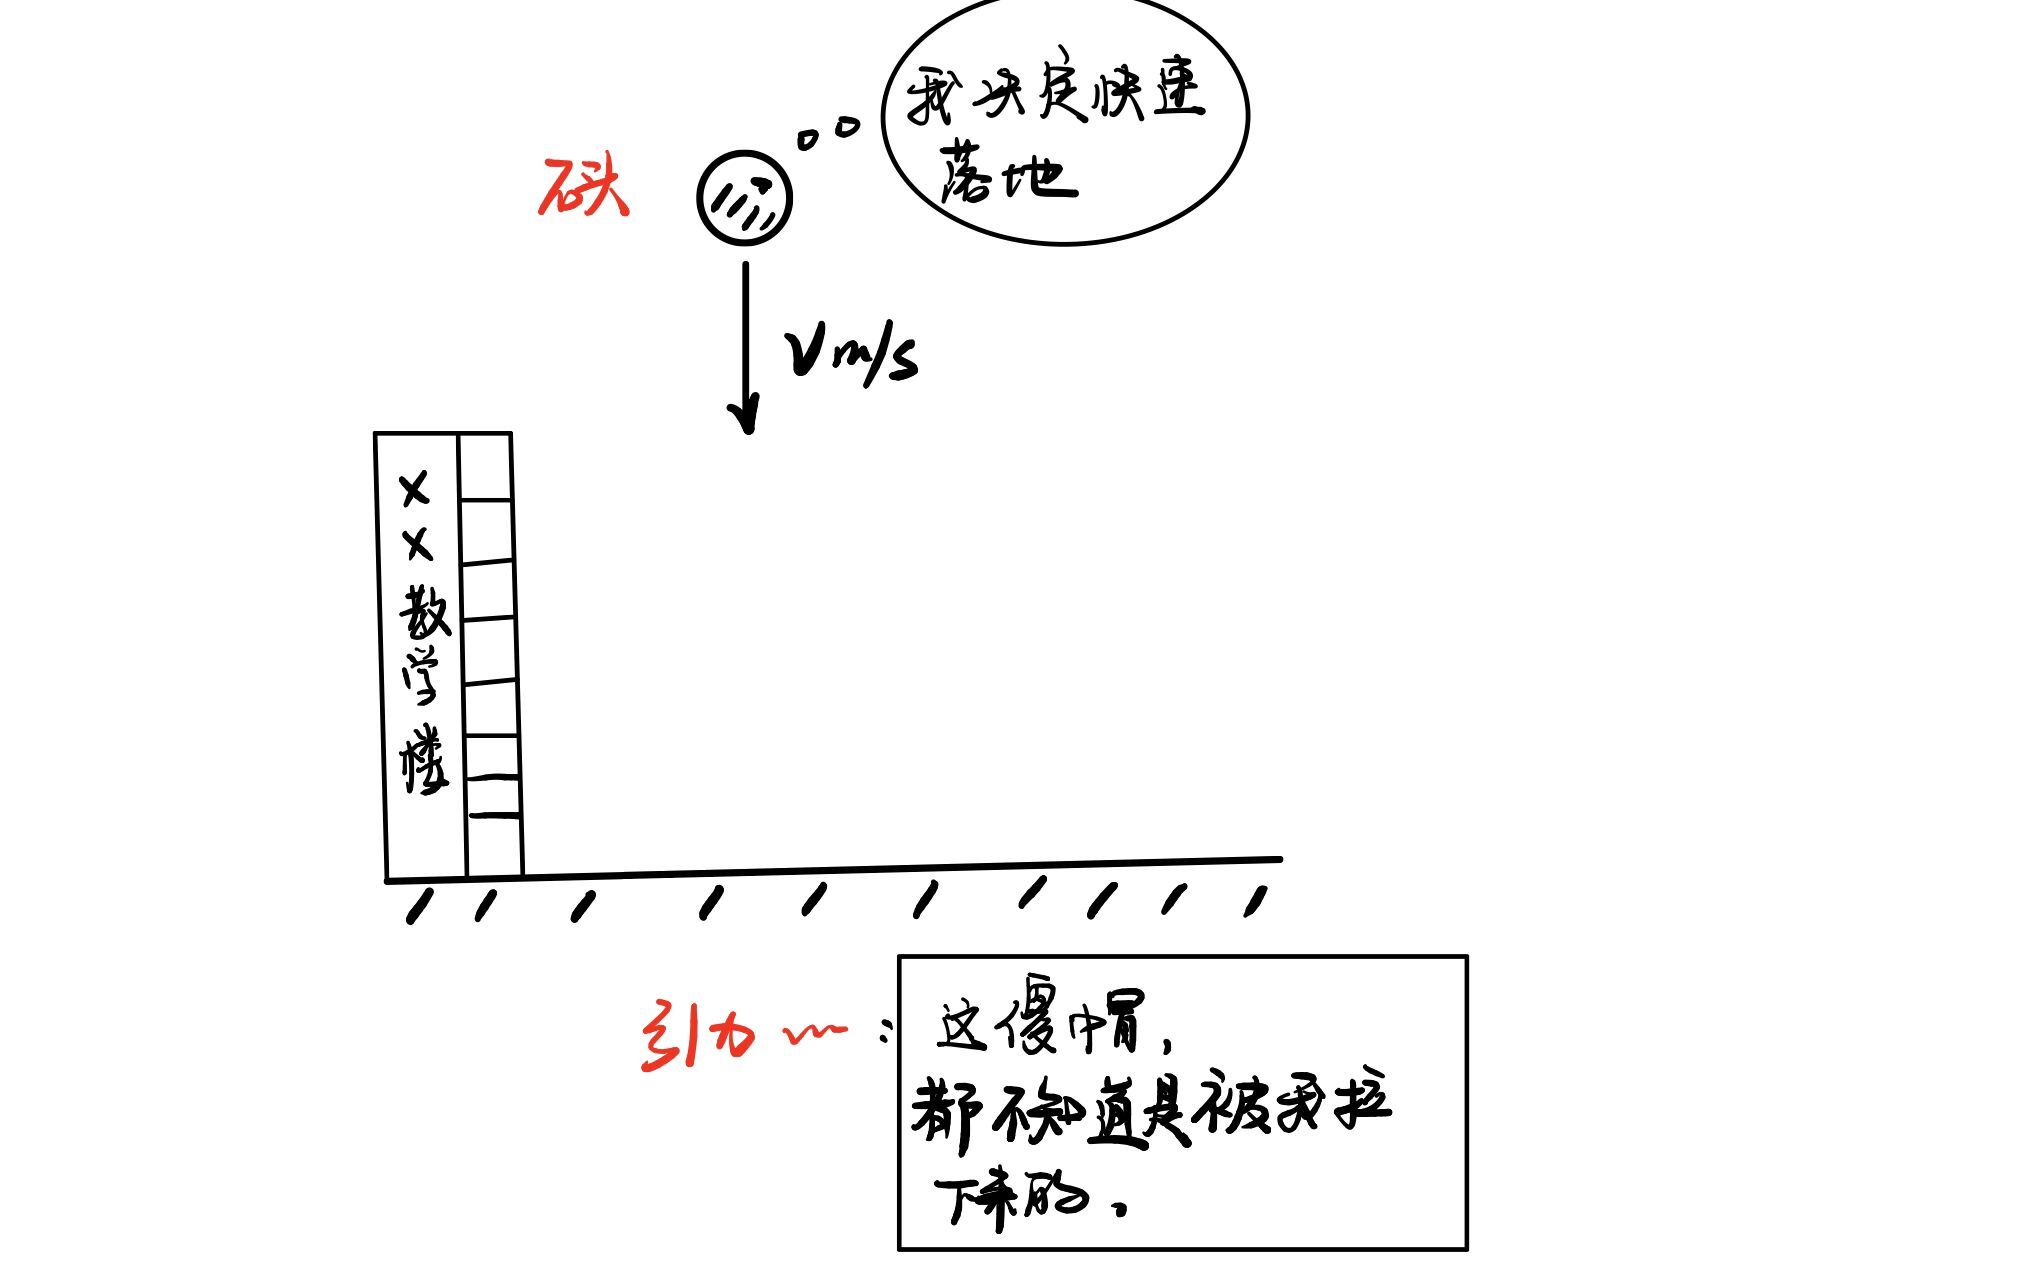 我决定快速
落地
石头
V m/s
XX教学楼
引力~:
这傻帽，
都不知道是被我拉
下来的.